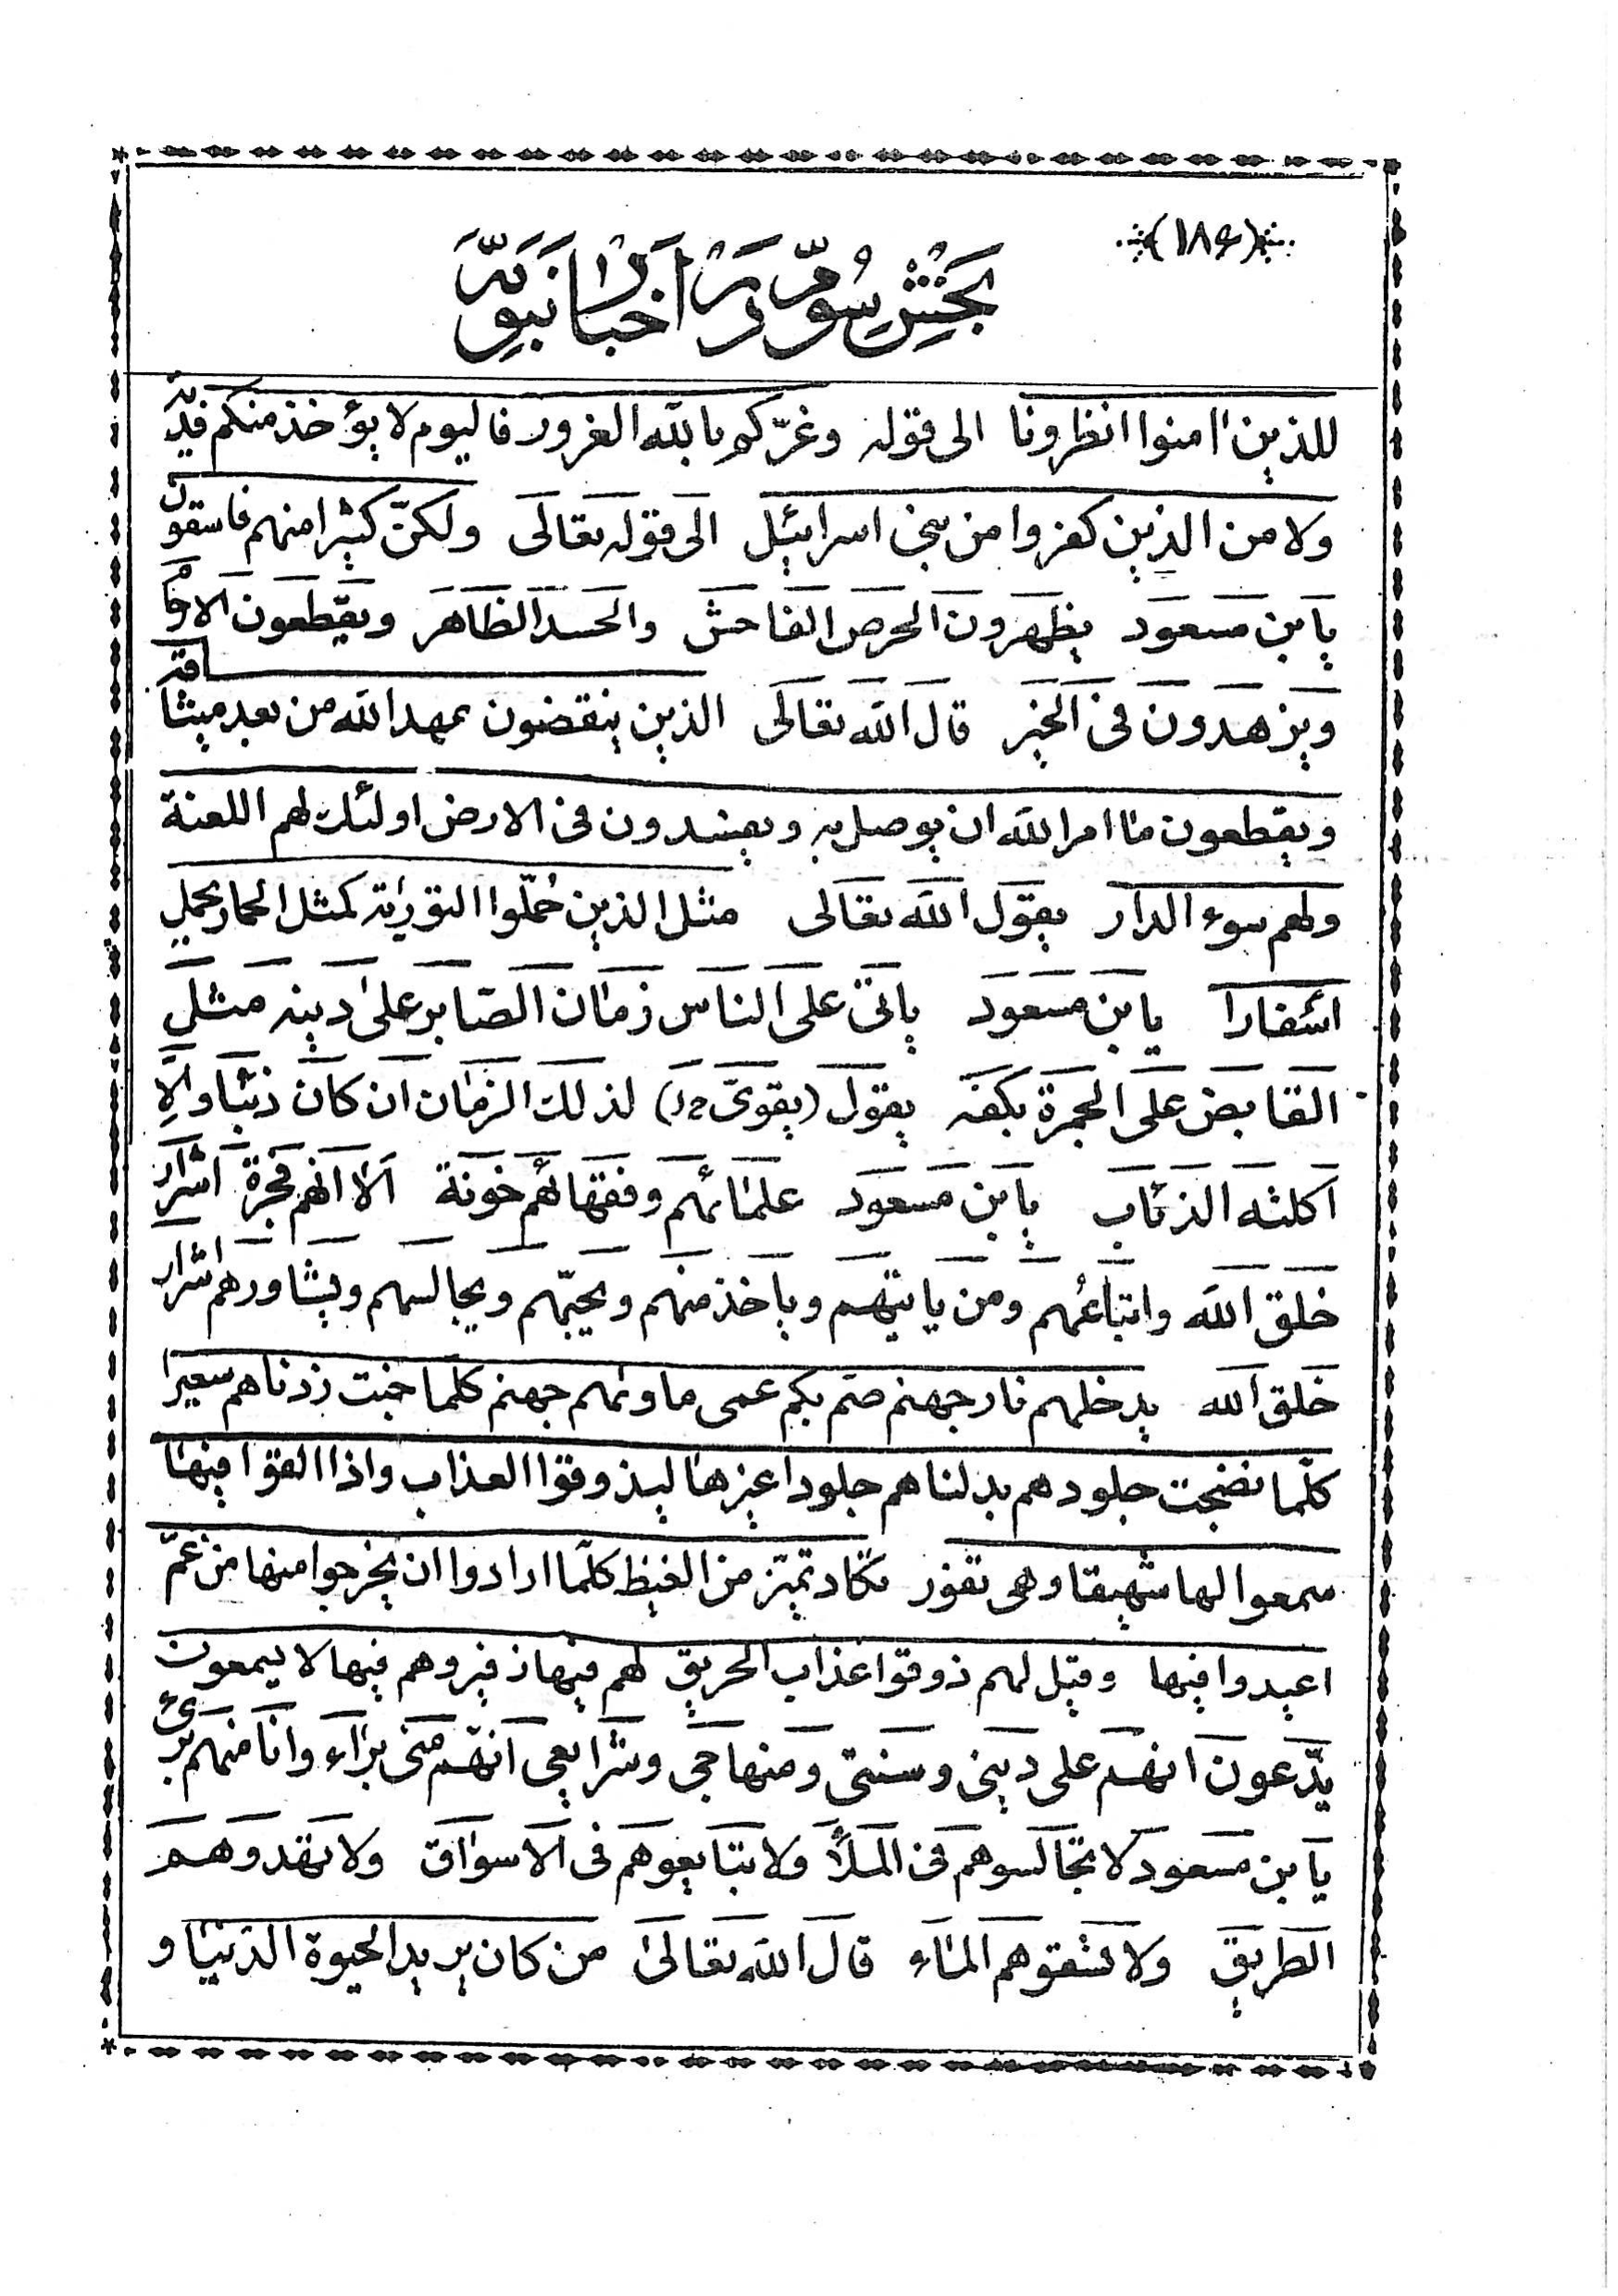 (۱۸۶)
بخش سوم در اخبار نبویه
للذین اٰمنوا انظرونا الی قوله وغرّکم بالله الغرور فالیوم لا یؤخذ منکم فدیة
ولا من الذین کفروا من بنی اسرائیل الی قوله تعالی ولکنّ کثیرا منهم فاسقون
یابن مسعود یظهرون الحرص الفاحش والحسد الظاهر ویقطعون الارحام
ویزهدون فی الخیر قال الله تعالی الذین ینقضون عهد الله من بعد میثاقه
ویقطعون ما امر الله ان یوصل به ویفسدون فی الارض اولئک لهم اللعنة
ولهم سوء الدار یقول الله تعالی مثل الذین حُمّلوا التوریٰة کمثل الحمار یحمل
اسفارا یابن مسعود یاتی علی الناس زمان الصّابر علی دینه مثل
القابض علی الجمرة بکفه یقول (یقوی خ ل) لذلک الزمان ان کان ذئبا والّا
اکلته الذئاب یابن مسعود علمائهم وفقهائهم خونة الا انهم فجرة اشرار
خلق الله واتباعهم ومن یاتیهم ویاخذ منهم ویحبّهم ویجالسهم ویشاورهم اشرار
خلق الله یدخلهم نار جهنم صم بکم عمی ماویٰهم جهنم کلما خبت زدناهم سعیرا
کلّما نضجت جلودهم بدلناهم جلودا غیرها لیذوقوا العذاب واذا القوا فیها
سمعوا لها شهیقا وهی تفور تکاد تمیّز من الغیظ کلّما ارادوا ان یخرجوا منها من غمّ
اعیدوا فیها وقیل لهم ذوقوا عذاب الحریق لهم فیها زفیر وهم فیها لا یسمعون
یدّعون انهم علی دینی وسنتی ومنهاجی وشرایعی انهم منی براء وانا منهم برئ
یابن مسعود لا تجالسوهم فی الملأ ولا تبایعوهم فی الاسواق ولا تهدوهم
الطریق ولا تسقوهم الماء قال الله تعالیٰ من کان یرید الحیوة الدنیا و